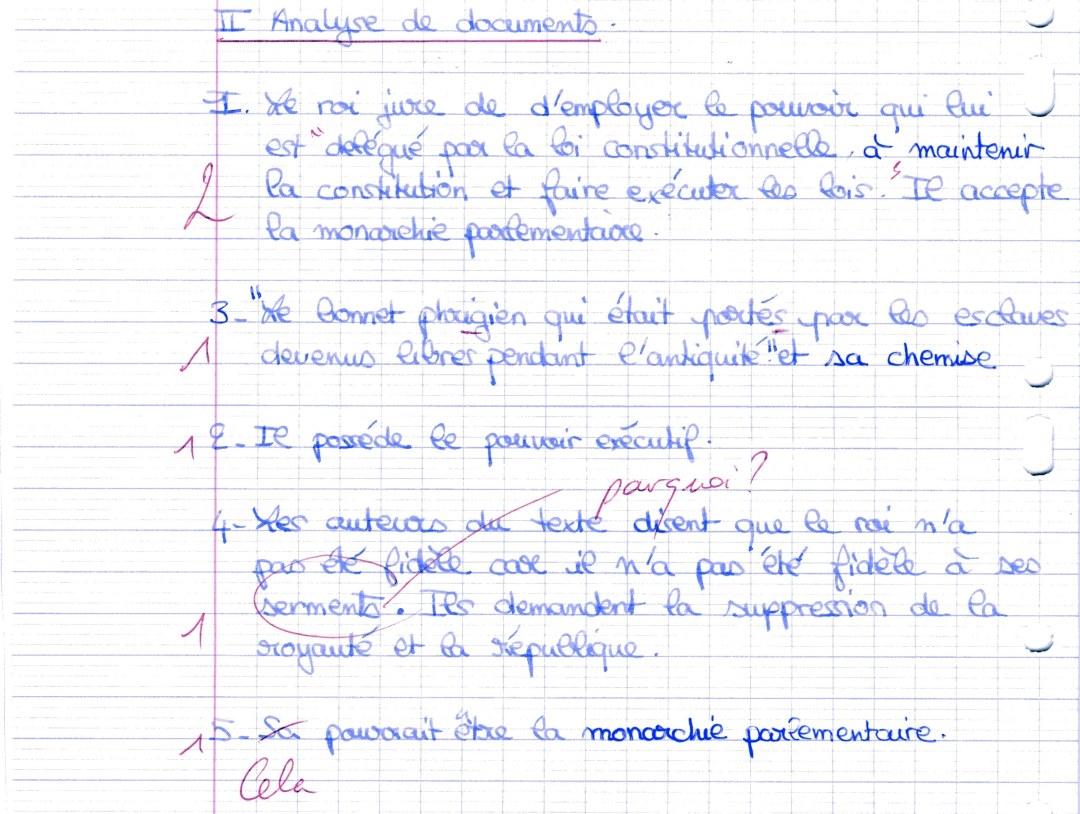 II Analyse de documents.
I. Le roi jure de d'employer le pouvoir qui lui
est "delégué par la loi constitutionnelle, à maintenir
2 la constitution et faire exécuter les lois." Il accepte
la monarchie parlementaire.
3- "Le bonnet phrigien qui était portés par les esclaves
1 devenus libres pendant l'antiquité" et sa chemise
1 2- Il posséde le pouvoir exécutif.
pourquoi ?
4- Les auteurs du texte disent que le roi n'a
pas été fidèle car il n'a pas été fidèle à ses
serments. Ils demandent la suppression de la
1 royauté et la république.
1 5- Sa pourrait être la monarchie parlementaire.
Cela